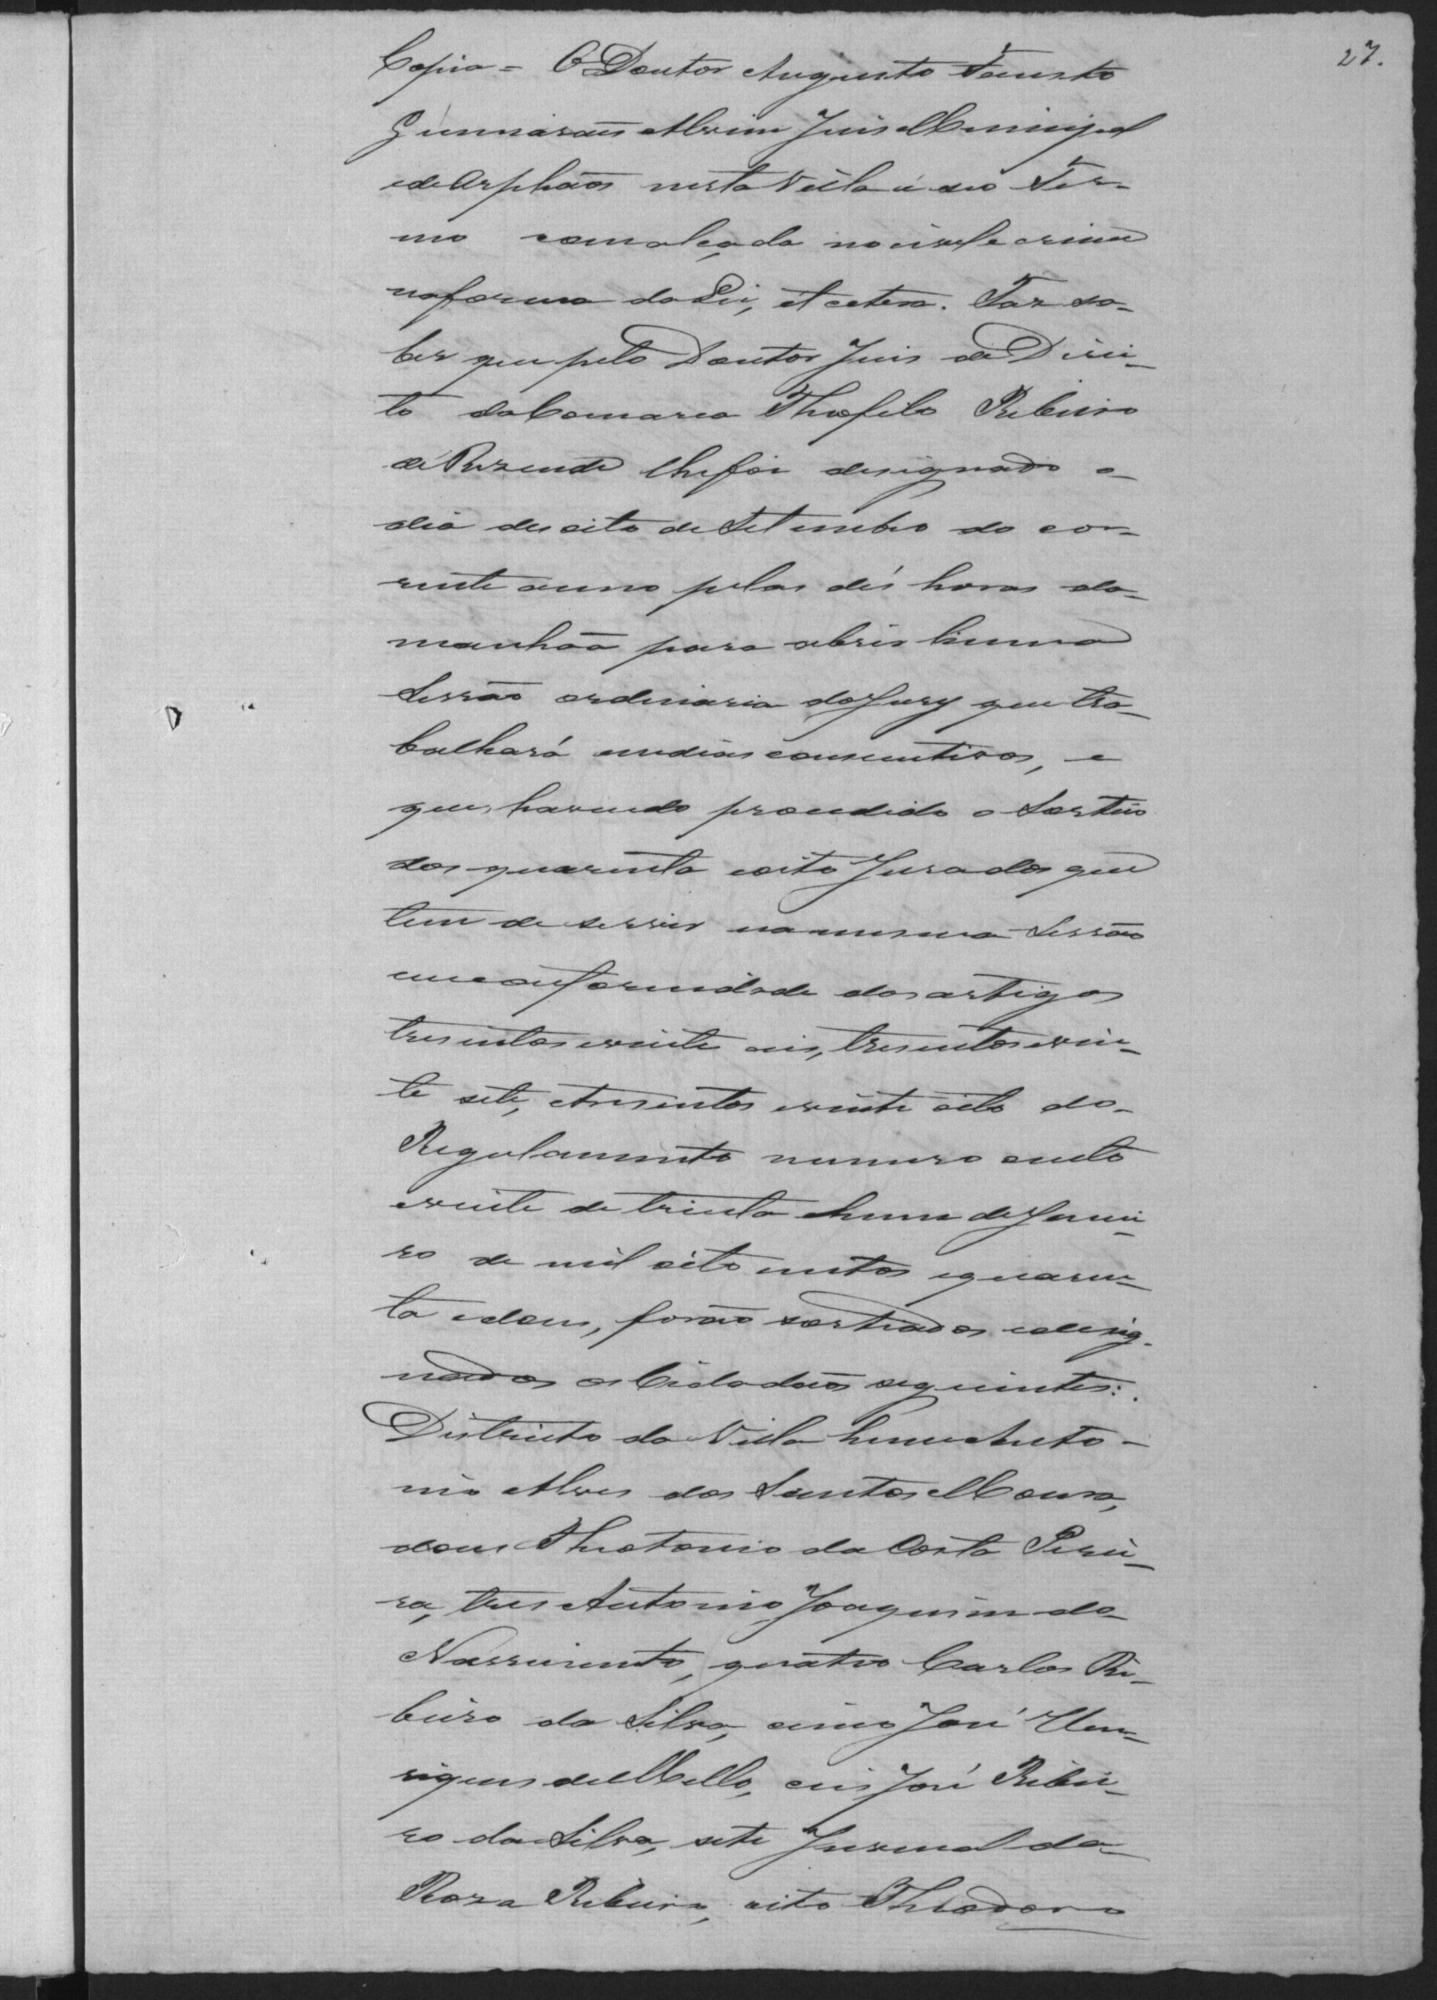 27.
Copia = O Doutor Augusto Fausto
Guimarães Alvim Juis Municipal
e de Orphãos nesta Villa e seo Ter-
mo com alçada no civel e crime
na forma da Lei, et cetera. Faz sa-
ber que pelo Doutor Juis de Direi-
to da Comarca Theofilo Ribeiro
de Rezende lhe foi designado o
dia desoito de Setembro do cor-
rente anno pelas dés horas da
manhaã para abrir huma
Sessão ordinaria do Jury que tra-
balhará em dias consecutivos, e
que, havendo procedido o Sorteio
dos quarenta e oito Jurados que
tem de servir na mesma Sessão
em conformidade dos artigos
tresentos e vinte seis, tresentos e vin-
te sete, e tresentos e vinte oito do
Regulamento numero cento
e vinte de trinta e hum de Janei-
ro de mil oito centos e quaren-
ta e dous, forão sorteados e desig-
nados os Cidadãos seguintes:
Districto da Villa hum Anto-
nio Alves dos Santos Moura,
dous Theotonio da Costa Perei-
ra, tres Antonio Joaquim do
Nascimento, quatro Carlos Ri-
beiro da Silva, cinco José Hen-
riques de Mello, seis José Ribei-
ro da Silva, sete Juvenal da
Roza Ribeiro, oito Theodoro